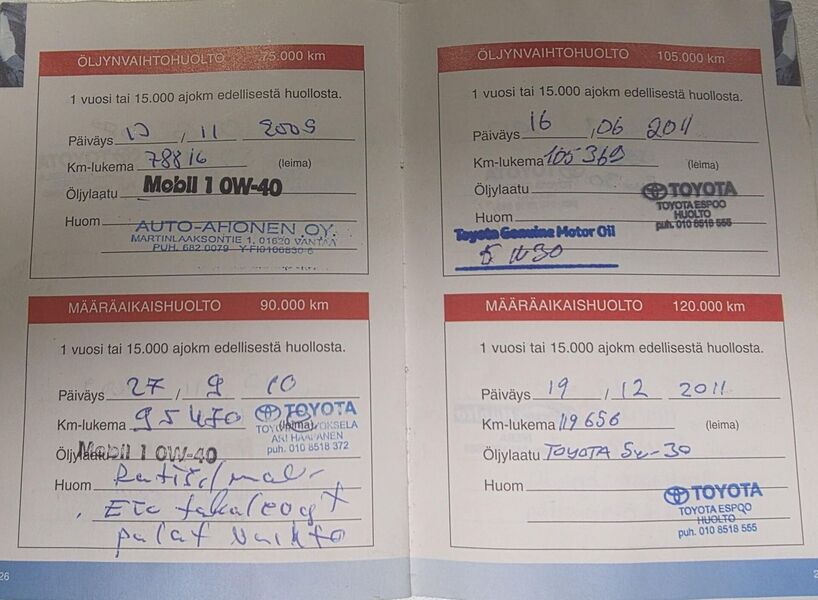 ÖLJYNVAIHTOHUOLTO 75.000 km
1 vuosi tai 15.000 ajokm edellisestä huollosta.
Päiväys / 11 2009
Km-lukema 78816 (leima)
Öljylaatu Mobil 1 0W-40
Huom
AUTO-AHONEN OY.
MARTINLAAKSONTIE 1, 01620 VANTAA
PUH. 682 0079 Y-FI0106830-6
MÄÄRÄAIKAISHUOLTO 90.000 km
1 vuosi tai 15.000 ajokm edellisestä huollosta.
Päiväys 27 / 9 10
Km-lukema 95470 (leima)
TOYOTA
ARI HAAPANEN
puh. 010 8518 372
Öljylaatu Mobil 1 0W-40
Huom
palat vaihto
26
ÖLJYNVAIHTOHUOLTO 105.000 km
1 vuosi tai 15.000 ajokm edellisestä huollosta.
Päiväys 16 / 06 2011
Km-lukema 105369 (leima)
Öljylaatu
TOYOTA
TOYOTA ESPOO
HUOLTO
puh. 010 8518 555
Huom
Toyota Genuine Motor Oil
5W30
MÄÄRÄAIKAISHUOLTO 120.000 km
1 vuosi tai 15.000 ajokm edellisestä huollosta.
Päiväys 19 / 12 2011
Km-lukema 119656 (leima)
Öljylaatu TOYOTA 5w-30
Huom
TOYOTA
TOYOTA ESPOO
HUOLTO
puh. 010 8518 555